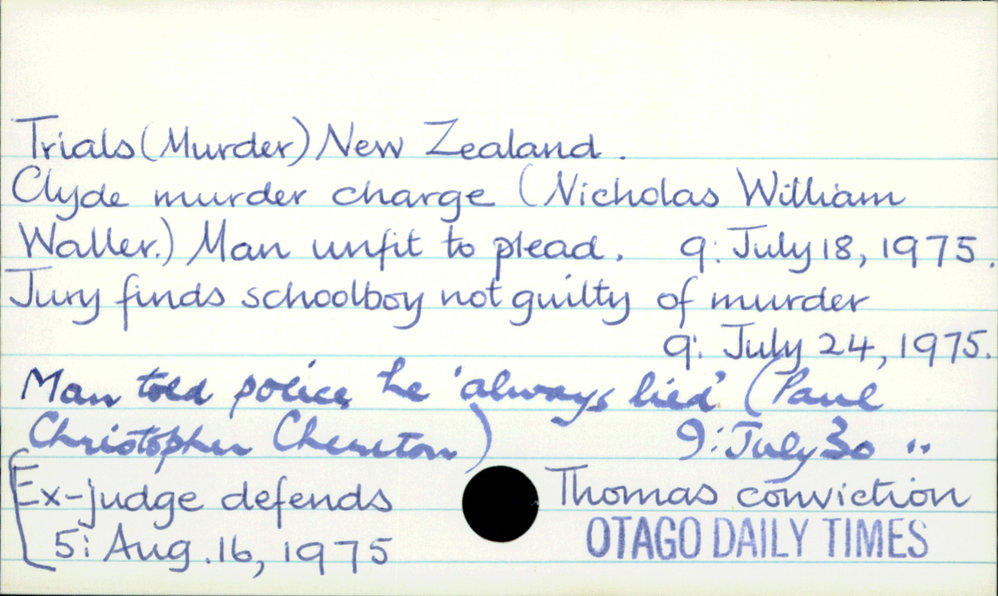 Trials (Murder) New Zealand.
Clyde murder charge (Nicholas William
Waller.) Man unfit to plead. 9: July 18, 1975.
Jury finds schoolboy not guilty of murder
9: July 24, 1975.
Man told police he 'always lied' (Paul
Christopher ) 9: July 30 "
Ex-judge defends Thomas conviction
5: Aug. 16, 1975
OTAGO DAILY TIMES